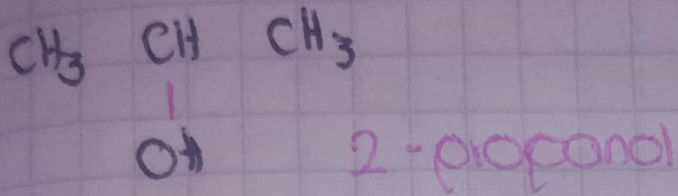 CH3 CH CH3
|
OH 2-propanol